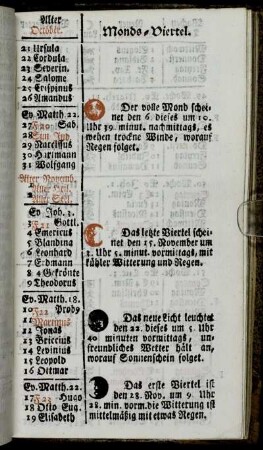 Alter
October.
21 Ursula
22 Cordula
23 Severin.
24 Salome
25 Crispinus
26 Amandus
Ev. Matth. 22.
27 F20 Sab.
28 Sim. Jud.
29 Narcissus
30 Hartmann
31 Wolfgang
Alter Novemb.
Ev. Joh. 3.
3 F21 Gottl.
4 Emericus
5 Blandina
6 Leonhard
7 Erdmann
8 4 Gekrönte
9 Theodorus
Ev. Matth. 18.
10 F22 Proby
11 Martinus
12 Jonas
13 Briccius
14 Levinius
15 Leopold
16 Otmar
Ev. Matth. 22.
17 F23 Hugo
18 Otto Eug.
19 Elisabeth
Monds-Viertel.
Der volle Mond schei-
net den 6. dieses um 10.
Uhr 39. minut. nachmittags, es
wehen trockne Winde, worauf
Regen folget.
Das letzte Viertel schei-
net den 15. November um
1. Uhr 5. minut. vormittags, mit
kühler Witterung und Regen.
Das neue Licht leuchtet
den 22. dieses um 5. Uhr
40 minuten vormittags, un-
freundliches Wetter hält an,
worauf Sonnenschein folget.
Das erste Viertel ist
den 28. Nov. um 9 Uhr
28. min. vorm. die Witterung ist
mittelmäßig mit etwas Regen.